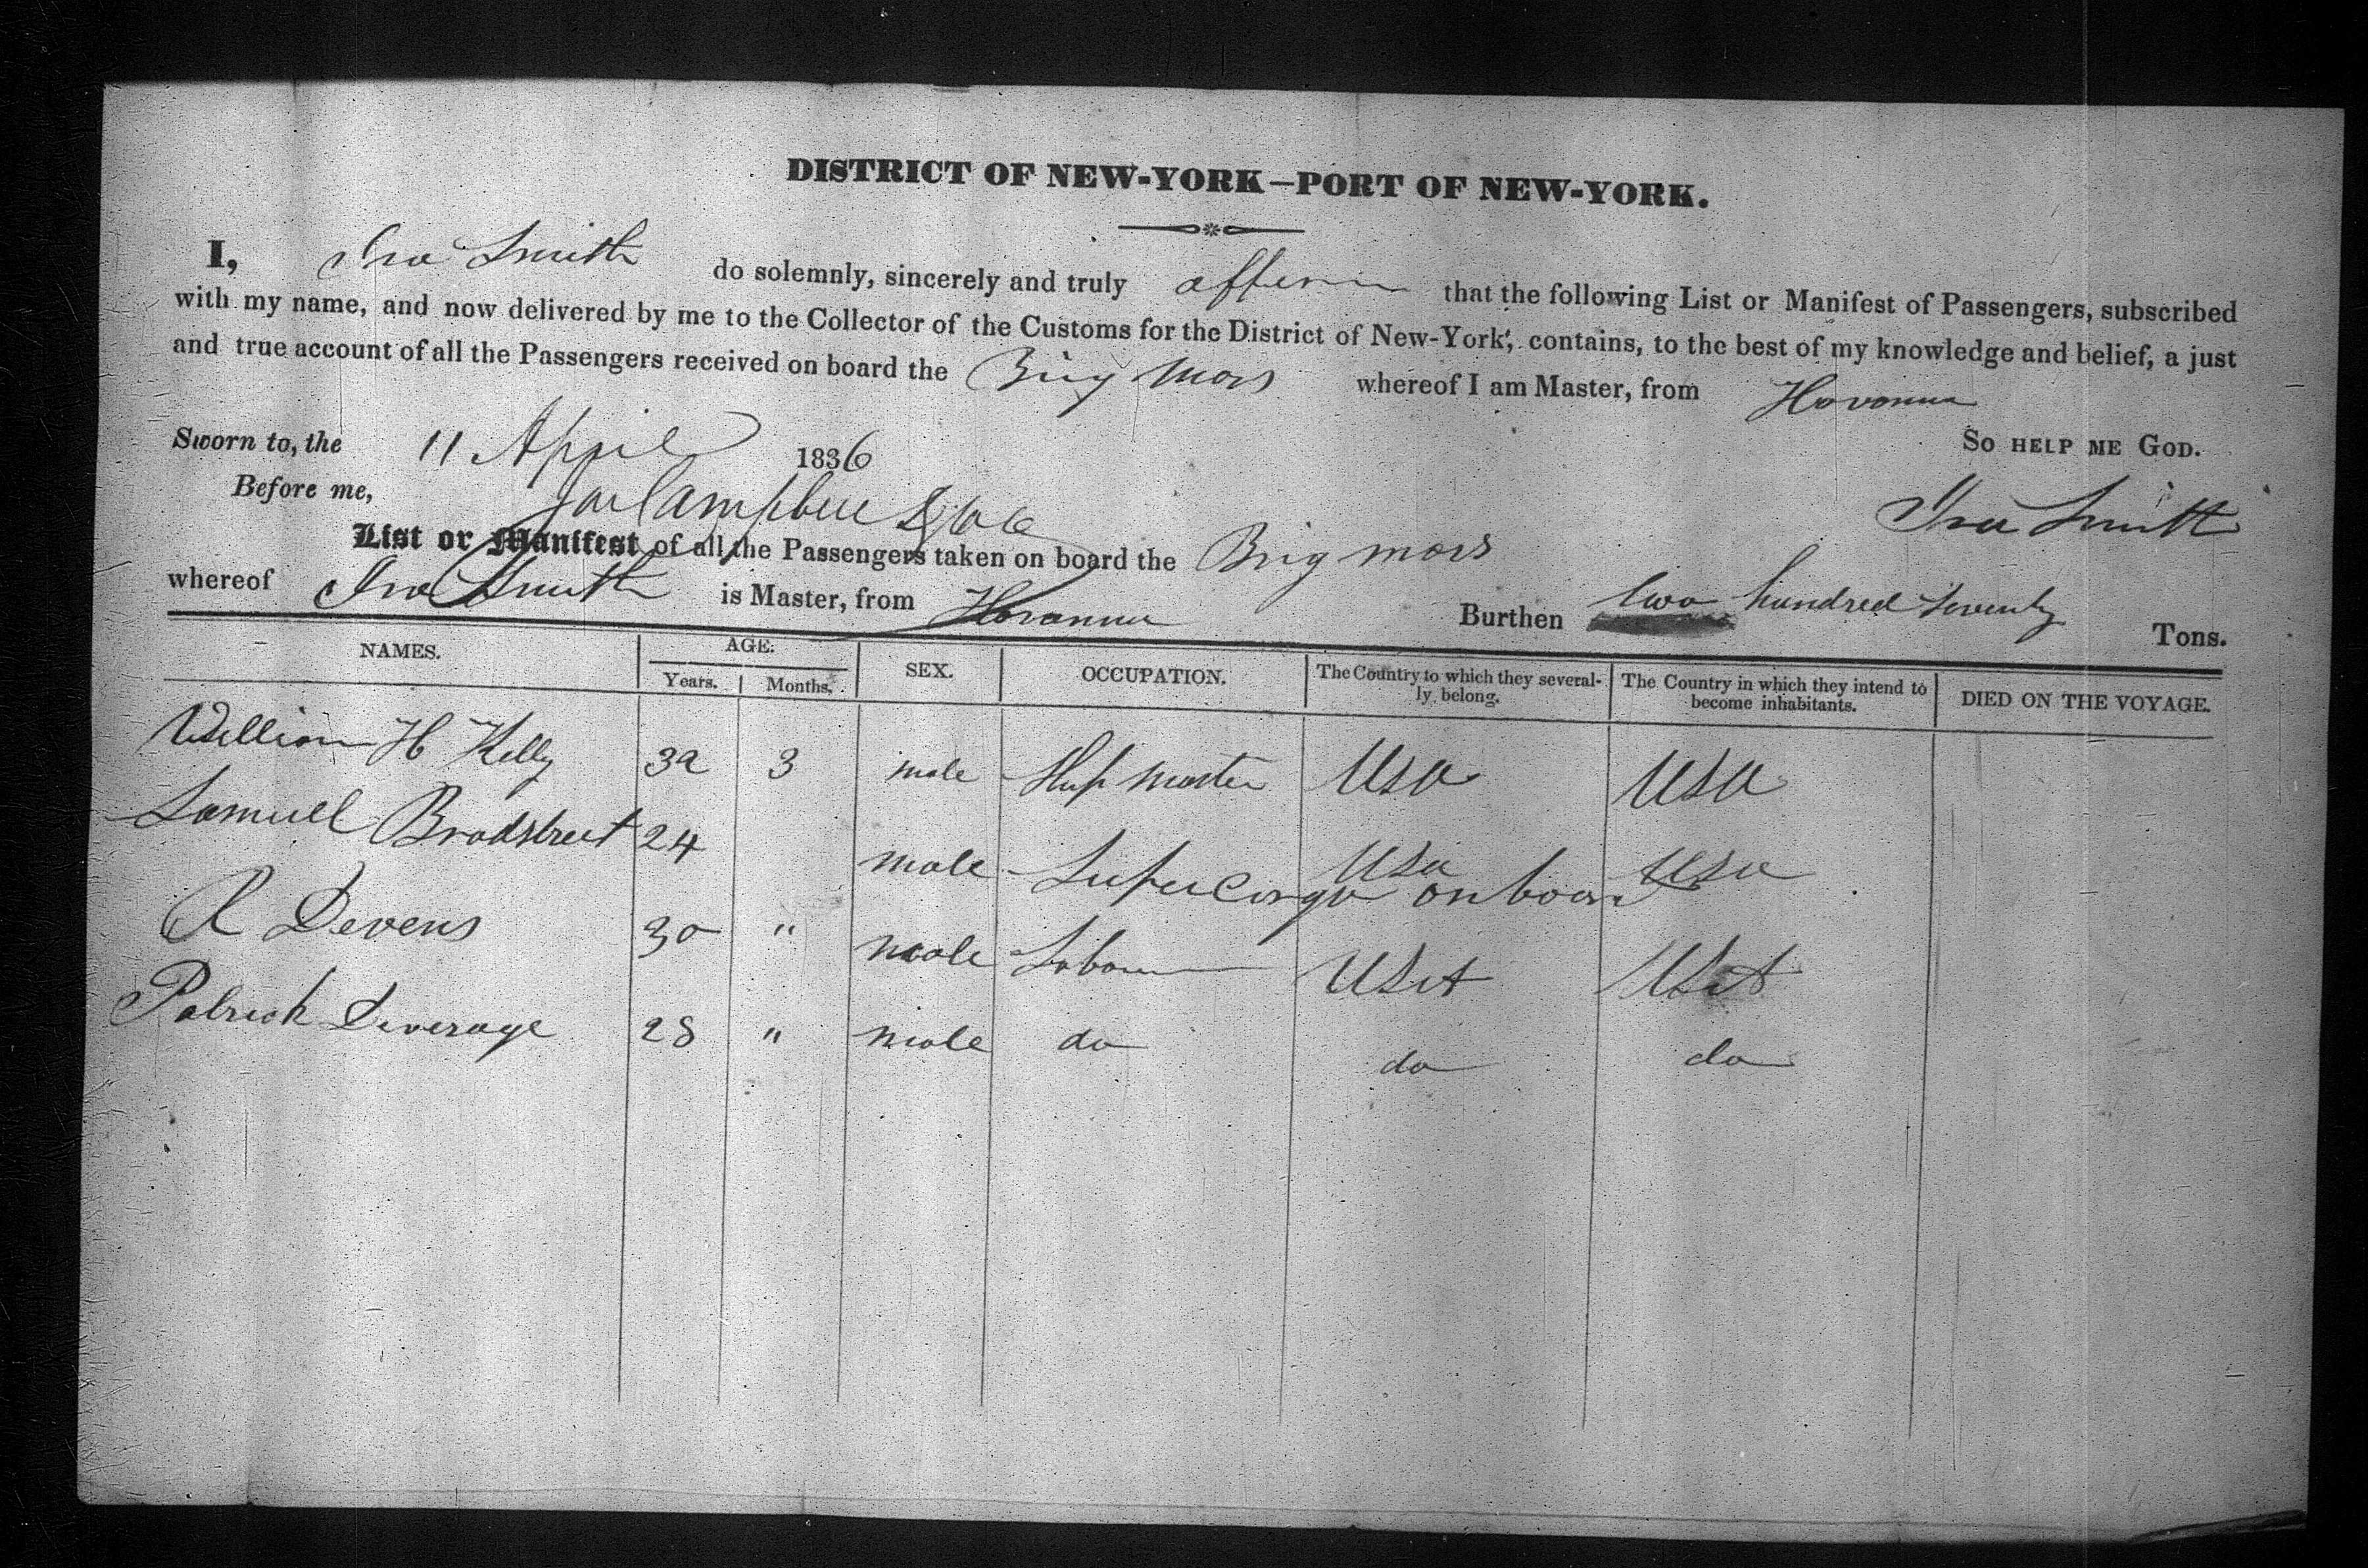 DISTRICT OF NEW-YORK—PORT OF NEW-YORK.
I, Ira Smith do solemnly, sincerely and truly affirm that the following List or Manifest of Passengers, subscribed
with my name, and now delivered by me to the Collector of the Customs for the District of New-York, contains, to the best of my knowledge and belief, a just
and true account of all the Passengers received on board the Brig Mars whereof I am Master, from Havanna
So HELP ME GOD.
Sworn to, the 11 April 1836
Before me, Campbell
Ira Smith
List or Manifest of all the Passengers taken on board the Brig Mars
whereof Ira Smith is Master, from Havanna Burthen two hundred seventy Tons.
NAMES. AGE. SEX. OCCUPATION. The Country to which they several- The Country in which they intend to DIED ON THE VOYAGE.
Years. Months. ly belong. become inhabitants.
William H Kelly 32 3 male Ship Master USA USA
Samuell Bradstreet 24 male Supercargo on board USA USA
R Devens 30 " male Labourer USA USA
Patrick Deverage 28 " male do do do